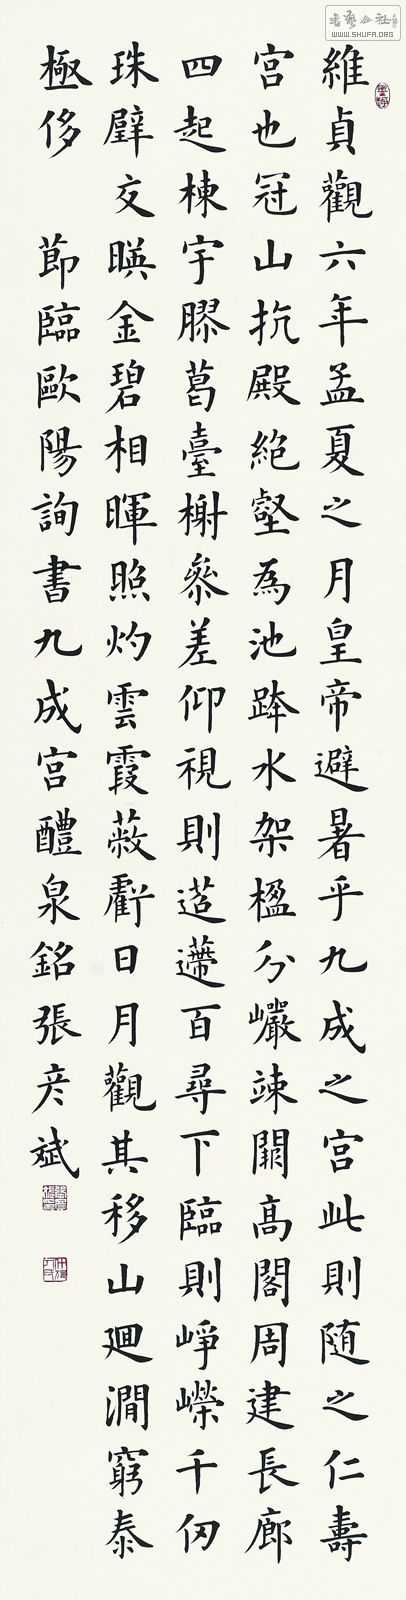 維貞觀六年孟夏之月皇帝避暑乎九成之宮此則随之仁壽
宮也冠山抗殿絶壑為池跨水架楹分巖竦闕高閣周建長廊
四起棟宇膠葛臺榭參差仰視則迢遰百尋下臨則崢嶸千仞
珠壁交暎金碧相暉照灼雲霞蔽虧日月觀其移山廻澗窮泰
極侈 節臨歐陽詢書九成宮醴泉銘張彦斌
書藝公社
WWW.SHUFA.ORG